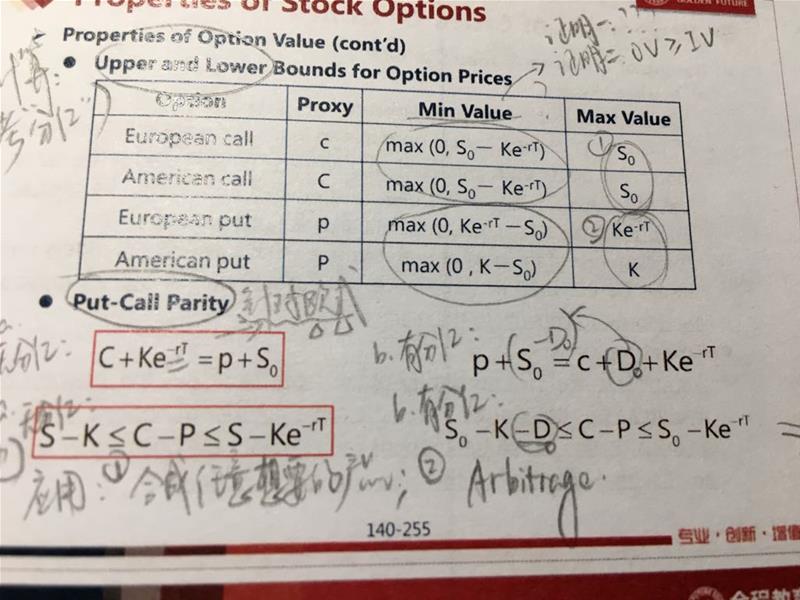 Properties of Stock Options
GOLDEN FUTURE
Properties of Option Value (cont'd)
证明=???
证明=OV≥IV
● Upper and Lower Bounds for Option Prices
Option Proxy Min Value Max Value
European call c max (0, S₀− Ke⁻ʳᵀ) ① S₀
American call C max (0, S₀− Ke⁻ʳᵀ) S₀
European put p max (0, Ke⁻ʳᵀ −S₀) ② Ke⁻ʳᵀ
American put P max (0 , K−S₀) K
● Put-Call Parity 针对欧式
无分红: C+Ke⁻ʳᵀ =p+S₀
b.有分红: p+(S₀-D₀)=c+D₀+Ke⁻ʳᵀ
a.无分红: S −K ≤ C −P ≤ S −Ke⁻ʳᵀ
b.有分红: S₀ −K −D₀≤ C −P ≤ S₀ −Ke⁻ʳᵀ
应用: ① 合成任意想要的产品; ② Arbitrage.
140-255
专业·创新·增值
金程教育